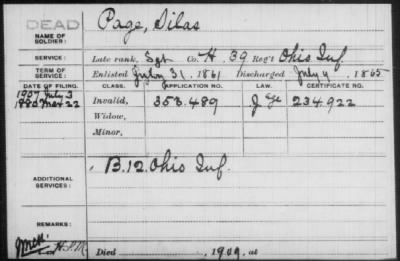 DEAD
Page, Silas
NAME OF SOLDIER:
SERVICE: Late rank, Sgt Co. H, 39 Reg't Ohio Inf.
TERM OF SERVICE: Enlisted July 31, 1861 Discharged July 9, 1865
DATE OF FILING. CLASS. APPLICATION NO. LAW. CERTIFICATE NO.
1907 July 3
1880 Mar 22 Invalid, 353.489 Age 234.922
Widow,
Minor,
ADDITIONAL SERVICES: B.12. Ohio Inf.
REMARKS:
Died 1909, at